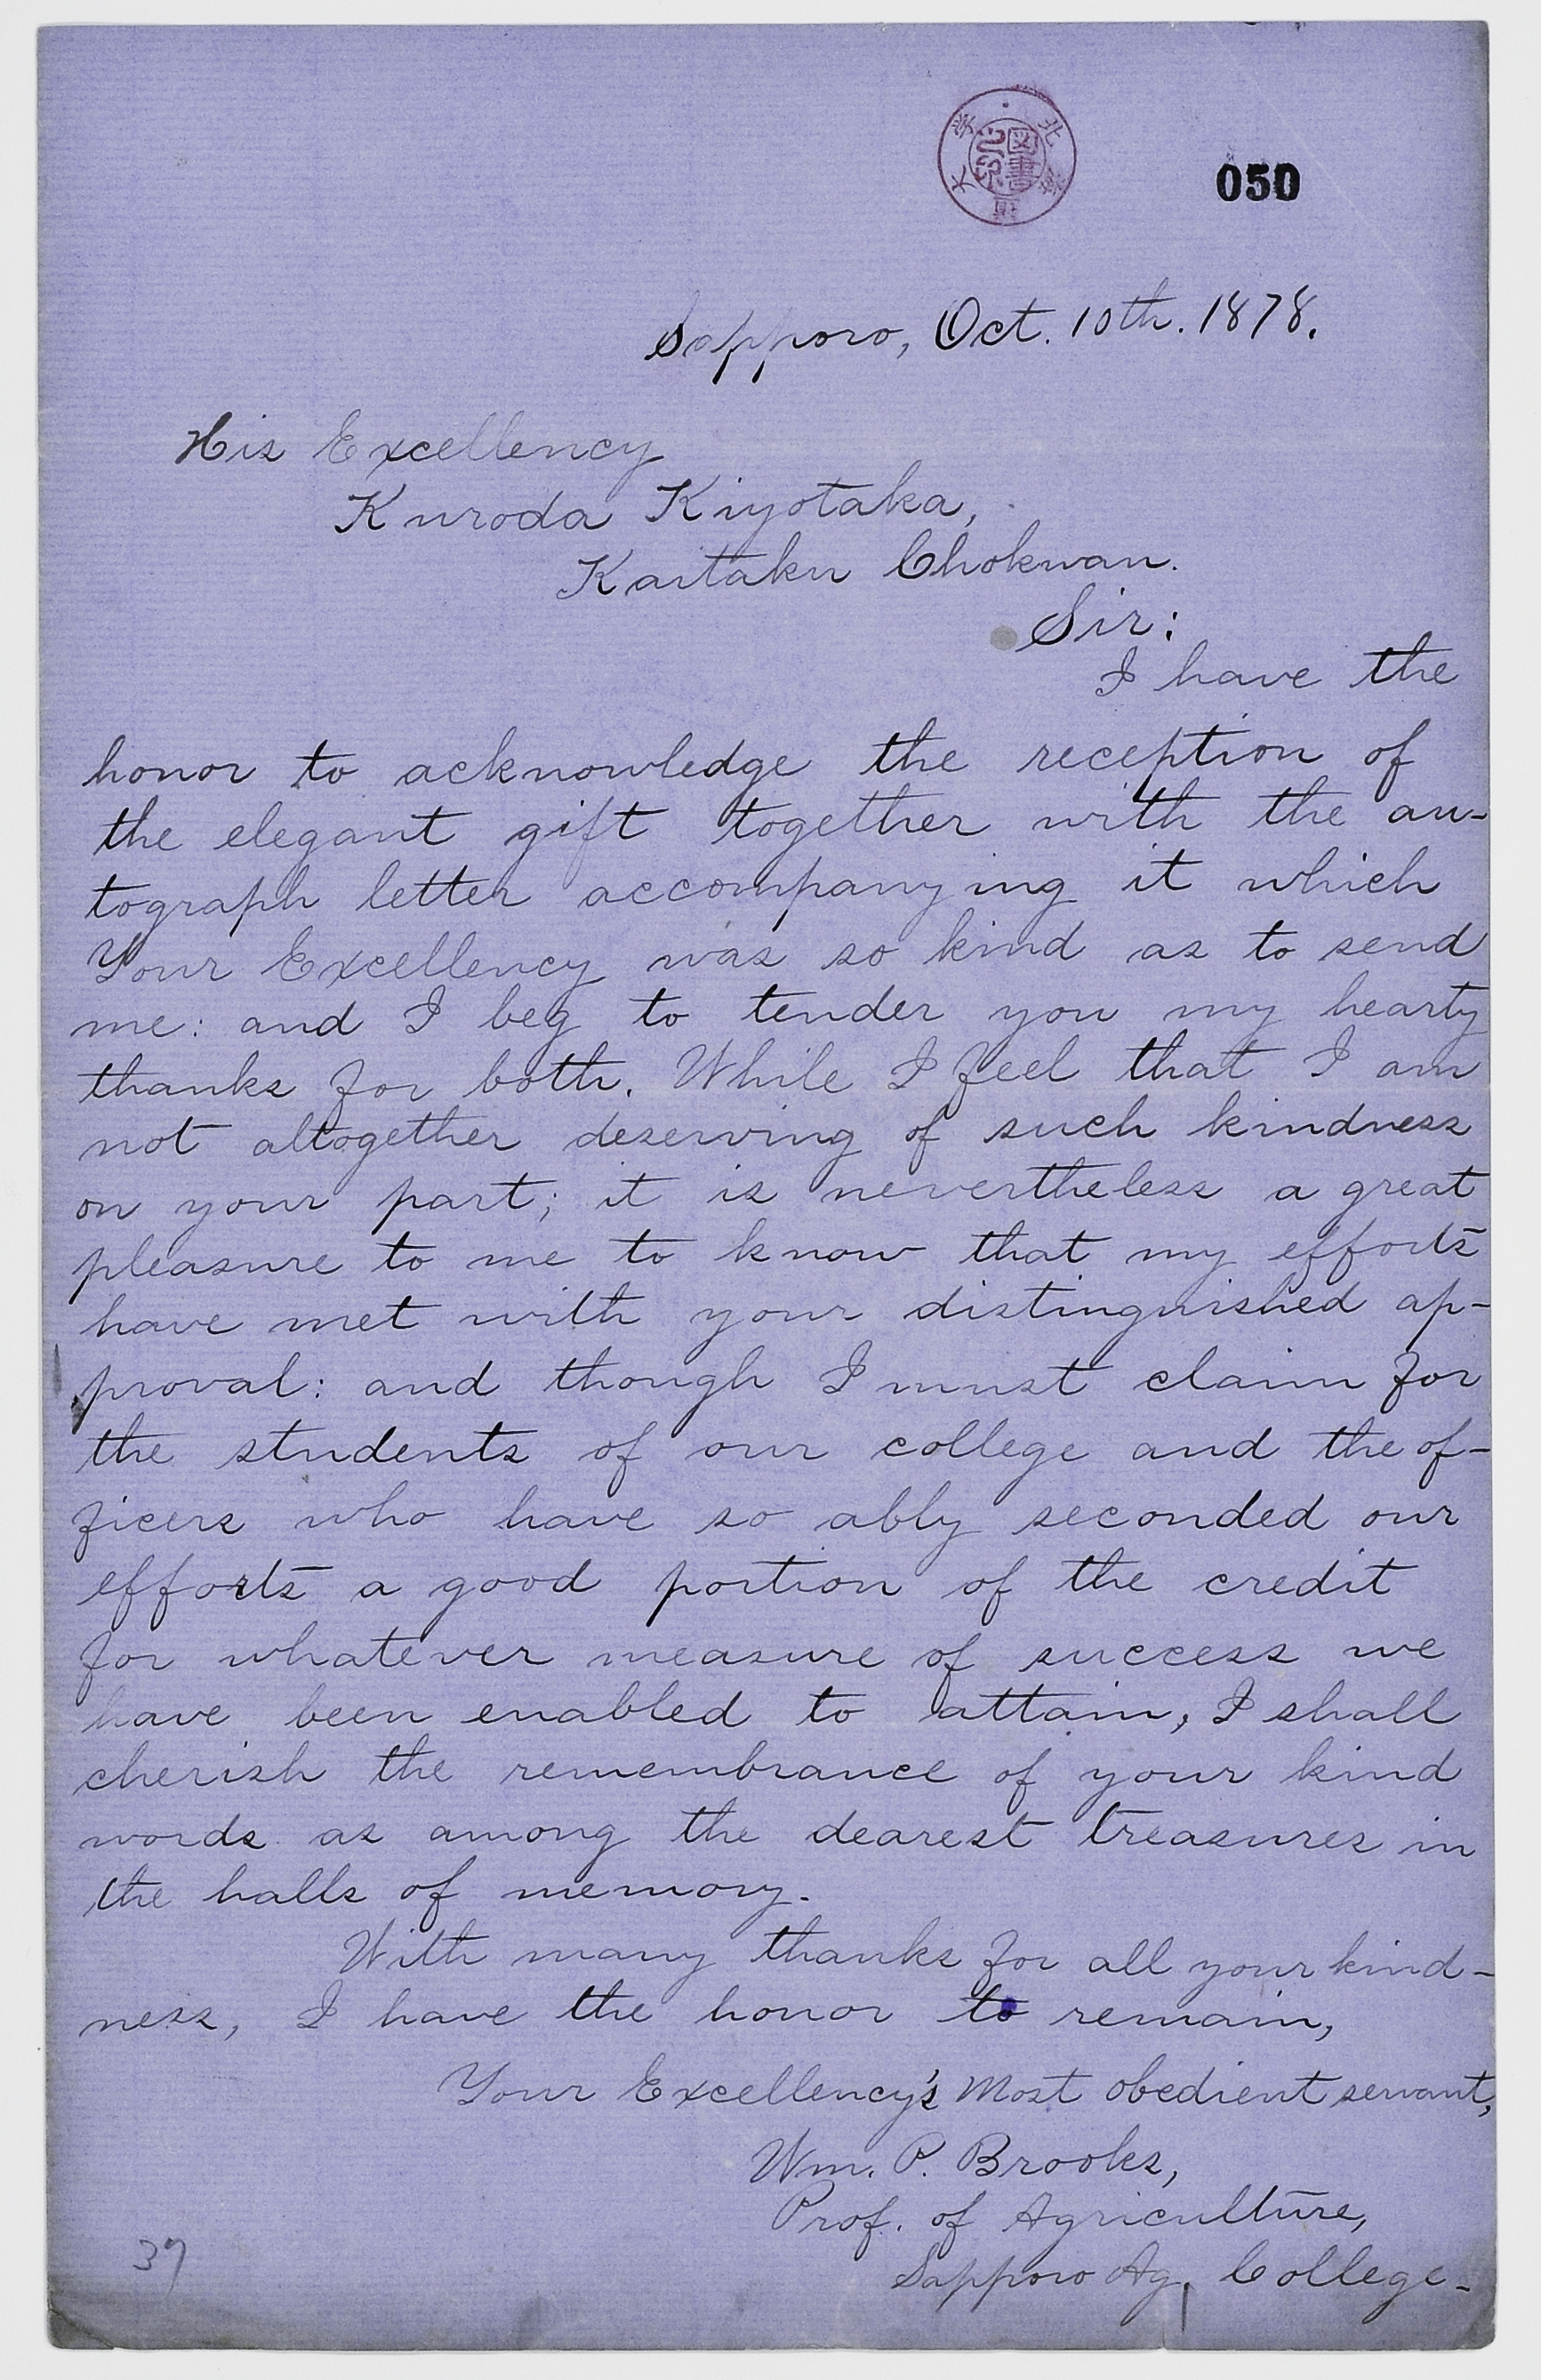 北海道大学
図書
050
Sapporo, Oct. 10th. 1878.
His Excellency
Kuroda Kiyotaka,
Kaitaku Chokwan.
Sir:
I have the
honor to acknowledge the reception of
the elegant gift together with the au-
tograph letter accompanying it which
Your Excellency was so kind as to send
me: and I beg to tender you my hearty
thanks for both. While I feel that I am
not altogether deserving of such kindness
on your part; it is nevertheless a great
pleasure to me to know that my efforts
have met with your distinguished ap-
proval: and though I must claim for
the students of our college and the of-
ficers who have so ably seconded our
efforts a good portion of the credit
for whatever measure of success we
have been enabled to attain, I shall
cherish the remembrance of your kind
words as among the dearest treasures in
the halls of memory.
With many thanks for all your kind-
ness, I have the honor to remain,
Your Excellency's Most obedient servant,
Wm. P. Brooks,
Prof. of Agriculture,
Sapporo Ag. College.
37